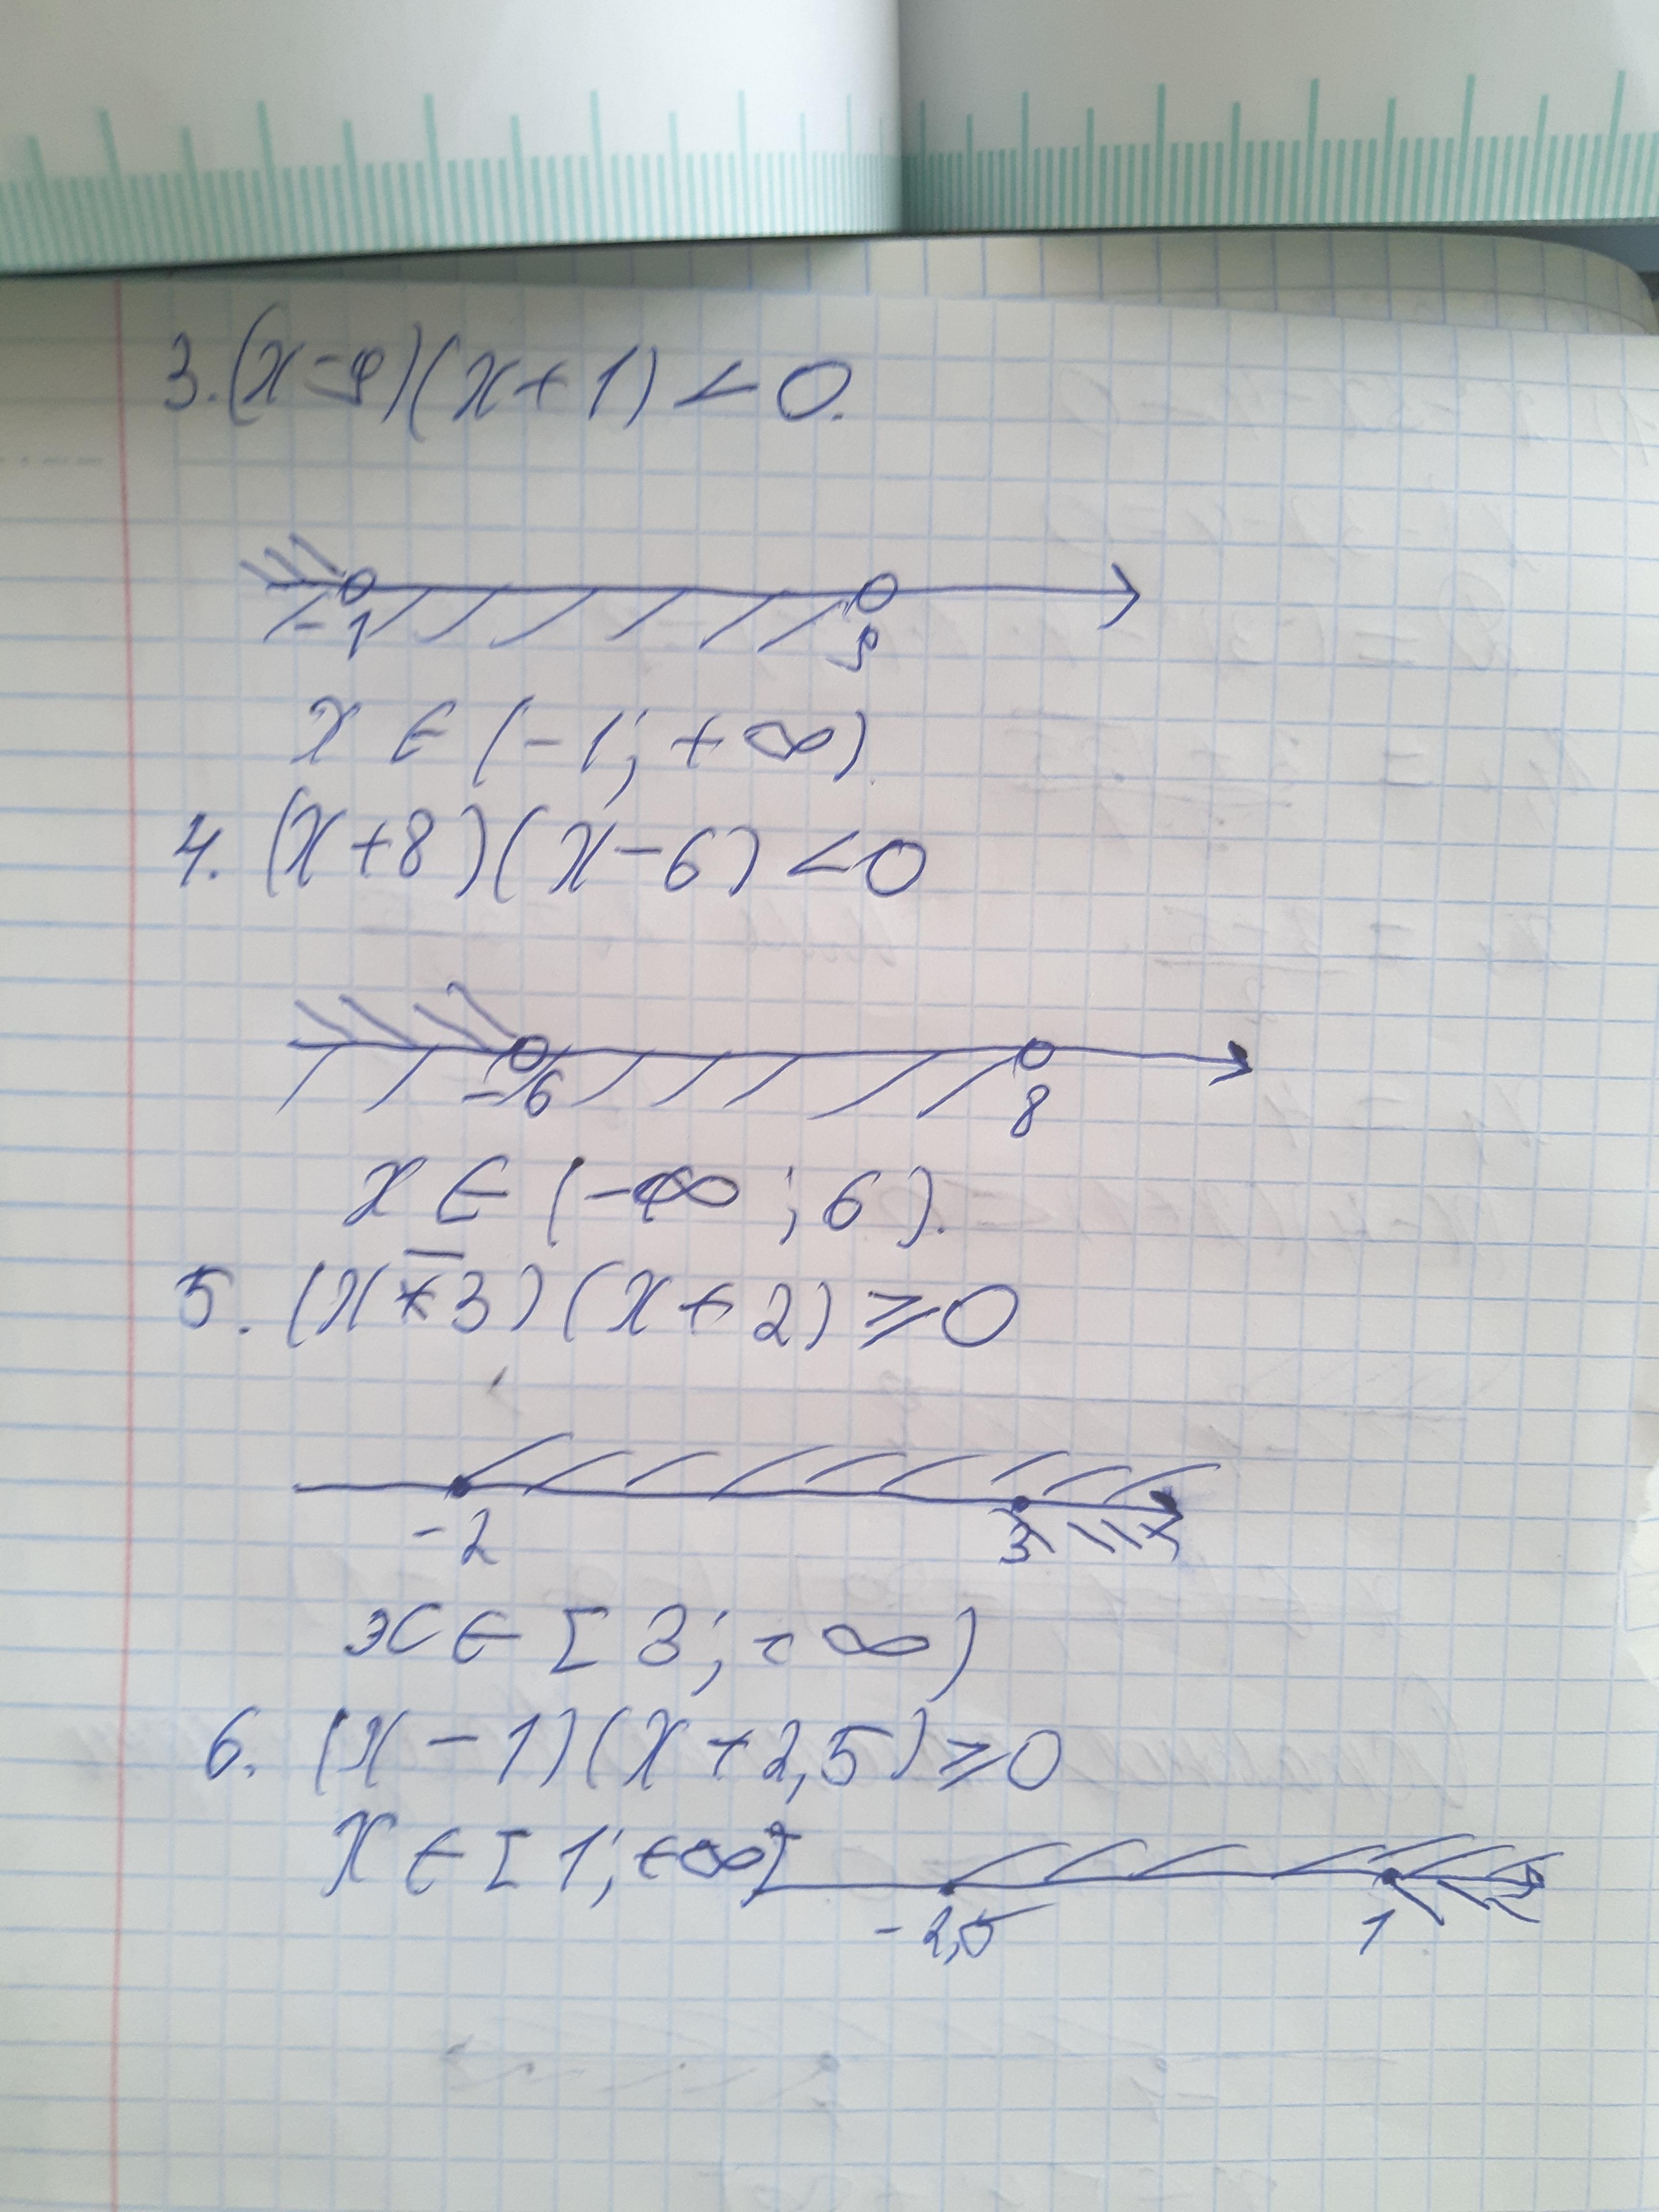 3. (x-9)(x+1) < 0.
-1 9
x ∈ (-1; +∞)
4. (x+8)(x-6) < 0
-6 8
x ∈ (-∞; 6).
5. (x-3)(x+2) ≥ 0
-2 3
x ∈ [3; +∞)
6. (x-1)(x+2,5) ≥ 0
x ∈ [1; +∞]
-2,5 1